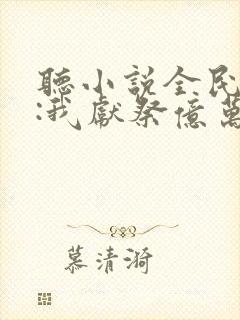 聽小說全民
:我獻祭億萬
慕清漪